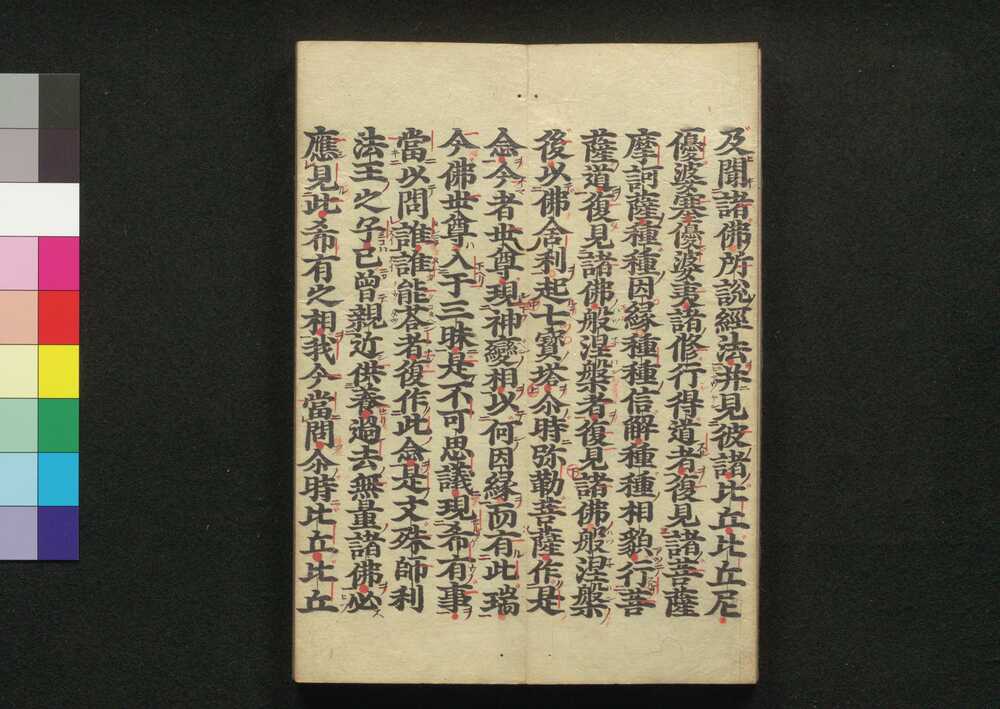 及聞諸佛所説經法并見彼諸比丘比丘尼
優婆塞優婆夷諸修行得道者復見諸菩薩
摩訶薩種種因縁種種信解種種相貌行菩
薩道復見諸佛般涅槃者復見諸佛般涅槃
後以佛舎利起七寳塔尒時弥勒菩薩作是
念今者世尊現神變相以何因縁而有此瑞
今佛世尊入于三昧是不可思議現希有事
當以問誰誰能答者復作此念是文殊師利
法王之子已曾親近供養過去無量諸佛必
應見此希有之相我今當問尒時比丘比丘